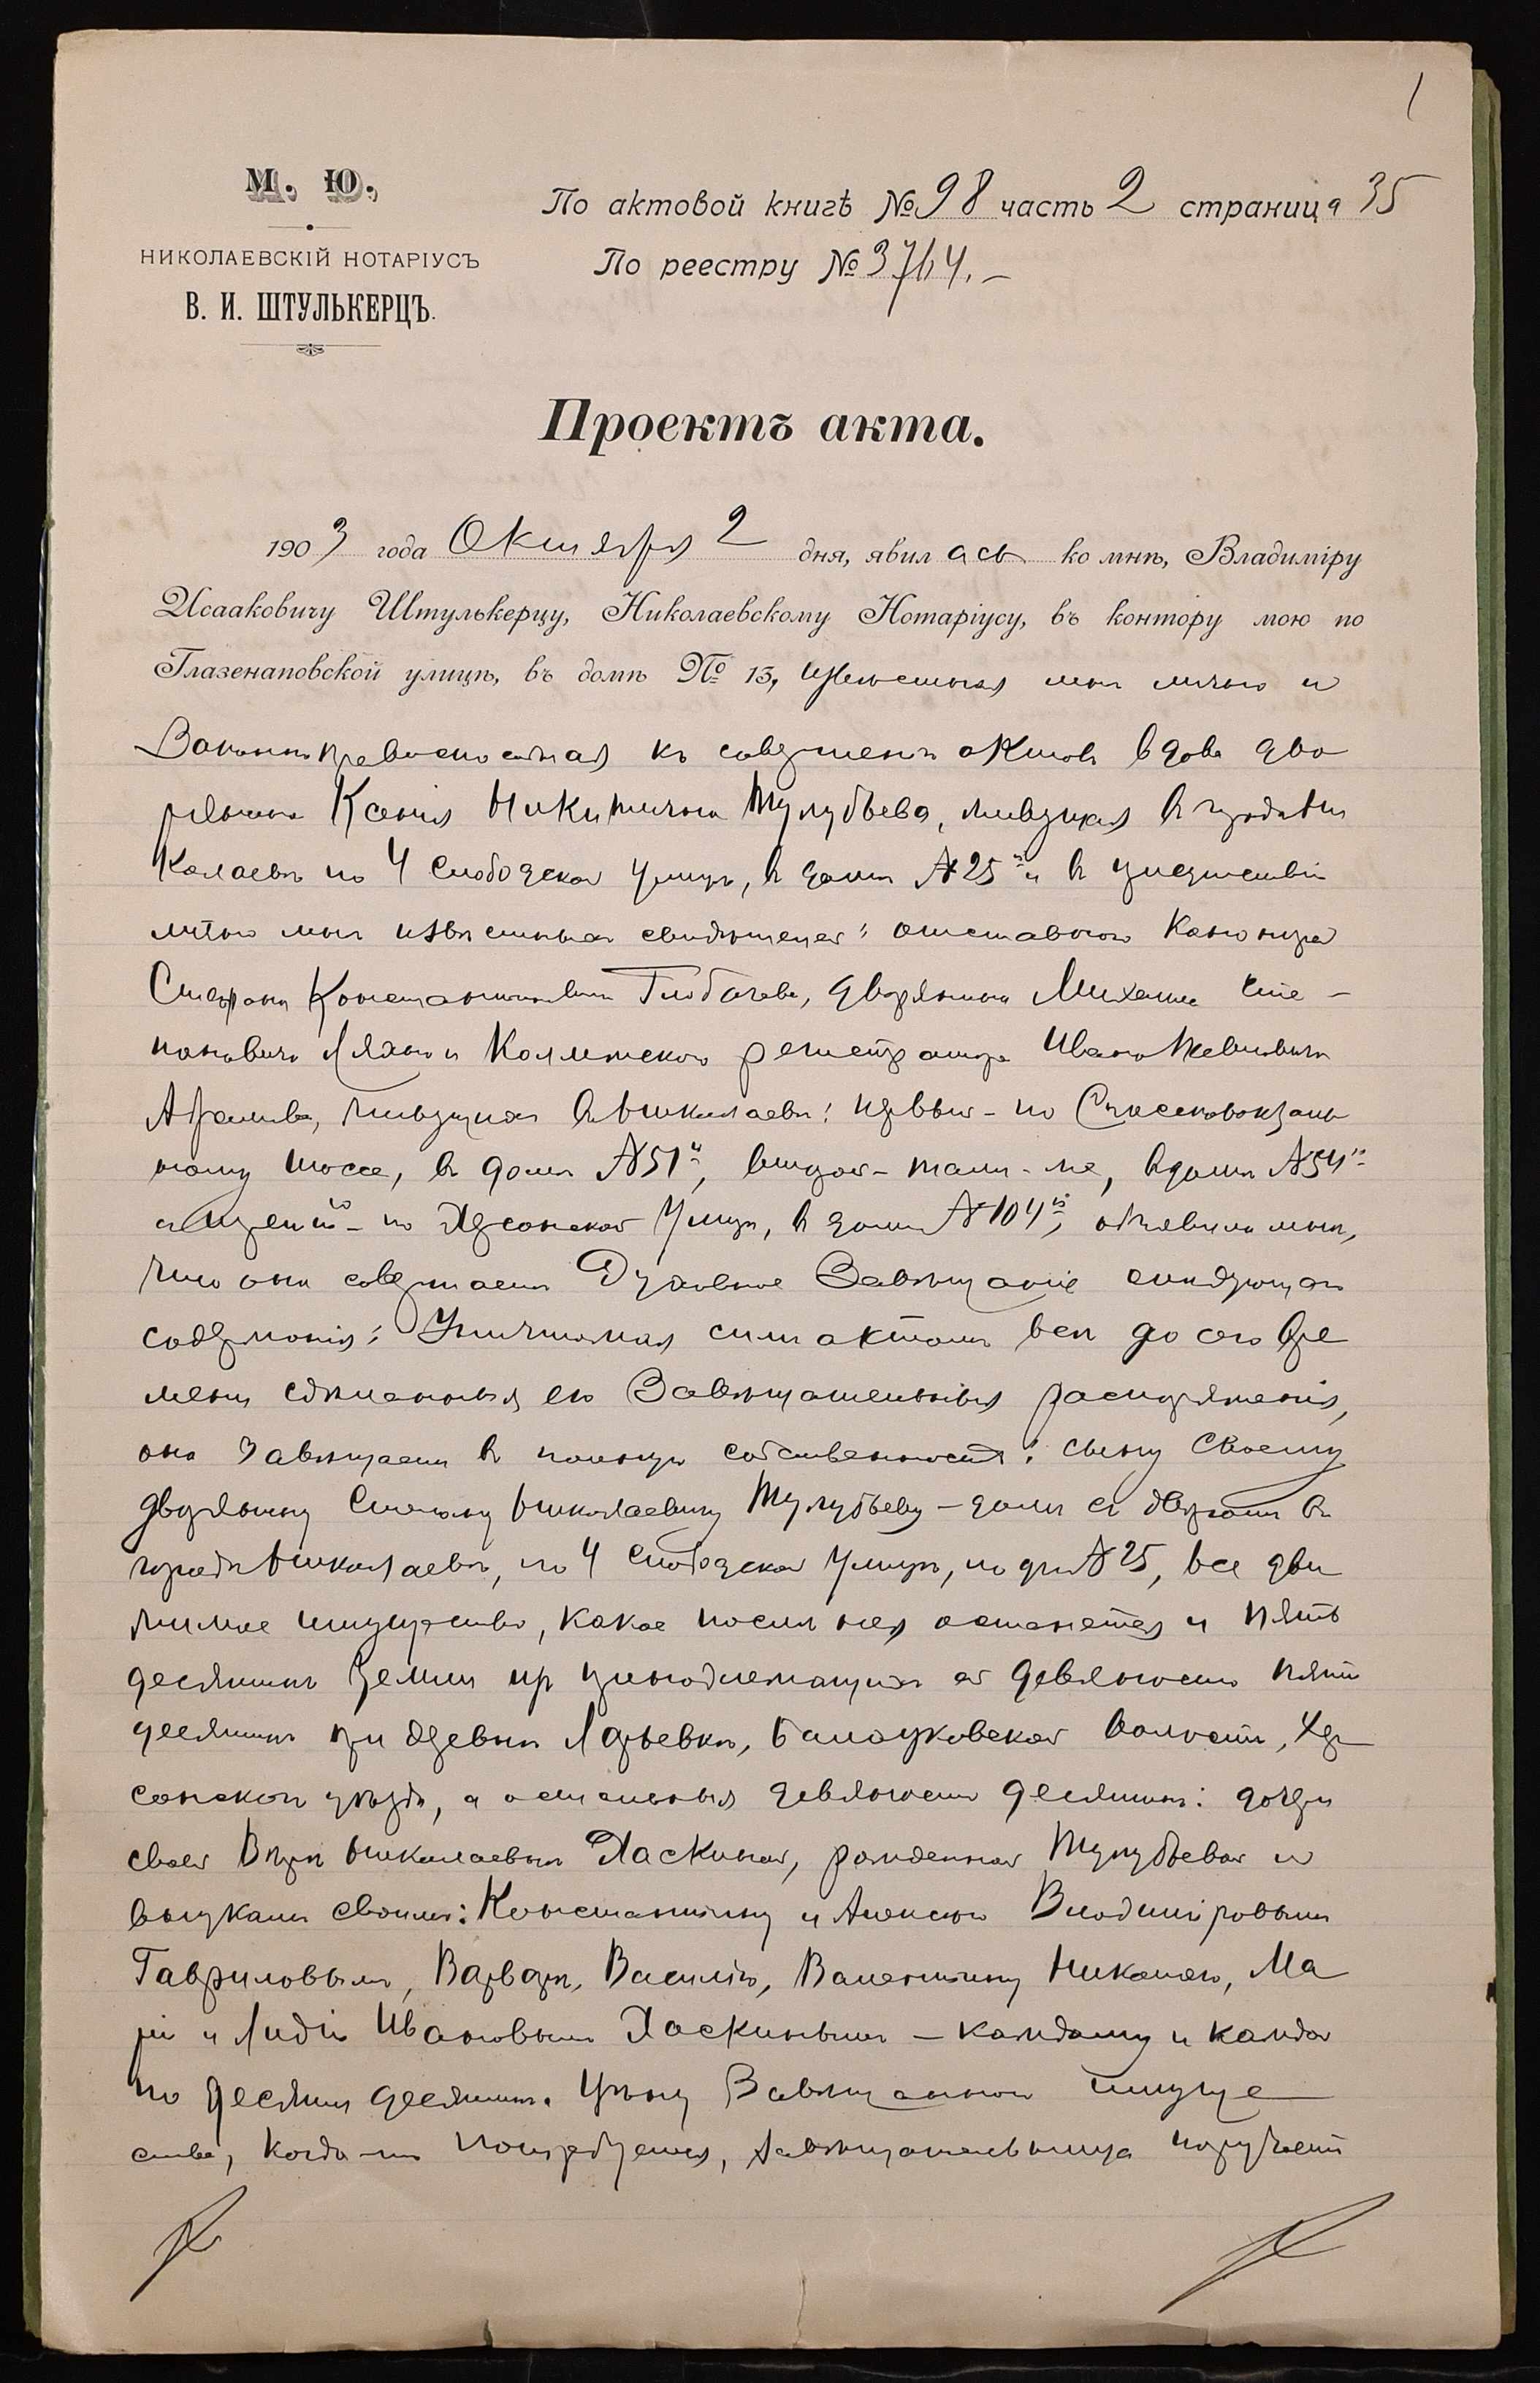 1
М. Ю.
По актовой книгѣ № 98 часть 2 страница 35
НИКОЛАЕВСКІЙ НОТАРІУСЪ
По реестру № 3764.–
В. И. ШТУЛЬКЕРЦЪ.
Проектъ акта.
1903 года Октября 2 дня, явилась ко мнѣ, Владиміру
Исааковичу Штулькерцу, Николаевскому Нотаріусу, въ контору мою по
Глазенаповской улицѣ, въ домѣ № 13, извѣстная мнѣ лично и
Законно правоспособная къ совершенію актовъ вдова дво
рянина Ксенія Никитична Тулубьева, живущая въ городѣ Ни
колаевѣ по 4 Слободской улицѣ, въ домѣ № 25й и въ присутствіи
лично мнѣ извѣстныхъ свидѣтелей: отставного
Константиновича дворянина Михаила Сте–
пановича и Коллежскаго регистратора Ивана
живущихъ въ Николаевѣ: первый – по
ному шоссе, въ домѣ № 51й, второй – тамъ-же, въ домѣ № 54й
и третій – по Херсонской улицѣ, въ домѣ № 104й, объявила мнѣ,
что она совершаетъ Духовное Завѣщаніе слѣдующаго
содержанія: Уничтожая симъ актомъ всѣ до сего вре
мени сдѣланныя ею Завѣщательныя распоряженія,
она завѣщаетъ въ полную собственность: сыну своему
дворянину Николаевичу Тулубьеву – домъ съ дворомъ въ
городѣ Николаевѣ, по 4 Слободской улицѣ, подъ № 25, все дви
жимое имущество, какое послѣ нея останется и пять
десятинъ земли изъ принадлежащихъ ей девяносто пяти
десятинъ при деревнѣ волости, Хер
сонскаго уѣзда, а остальныя девяносто десятинъ: дочери
своей Вѣрѣ Николаевнѣ Хаскиной, рожденной Тулубьевой и
внукамъ своимъ: Константину и Алексѣю Владиміровымъ
Гавриловымъ, Варварѣ, Василію, Валентину, Николаю, Ма
ріи и Лидіи Ивановымъ Хаскинымъ – каждому и каждой
по десяти десятинъ. Цѣну Завѣщанному имуще
ству, когда-то потребуется, завѣщательница поручаетъ